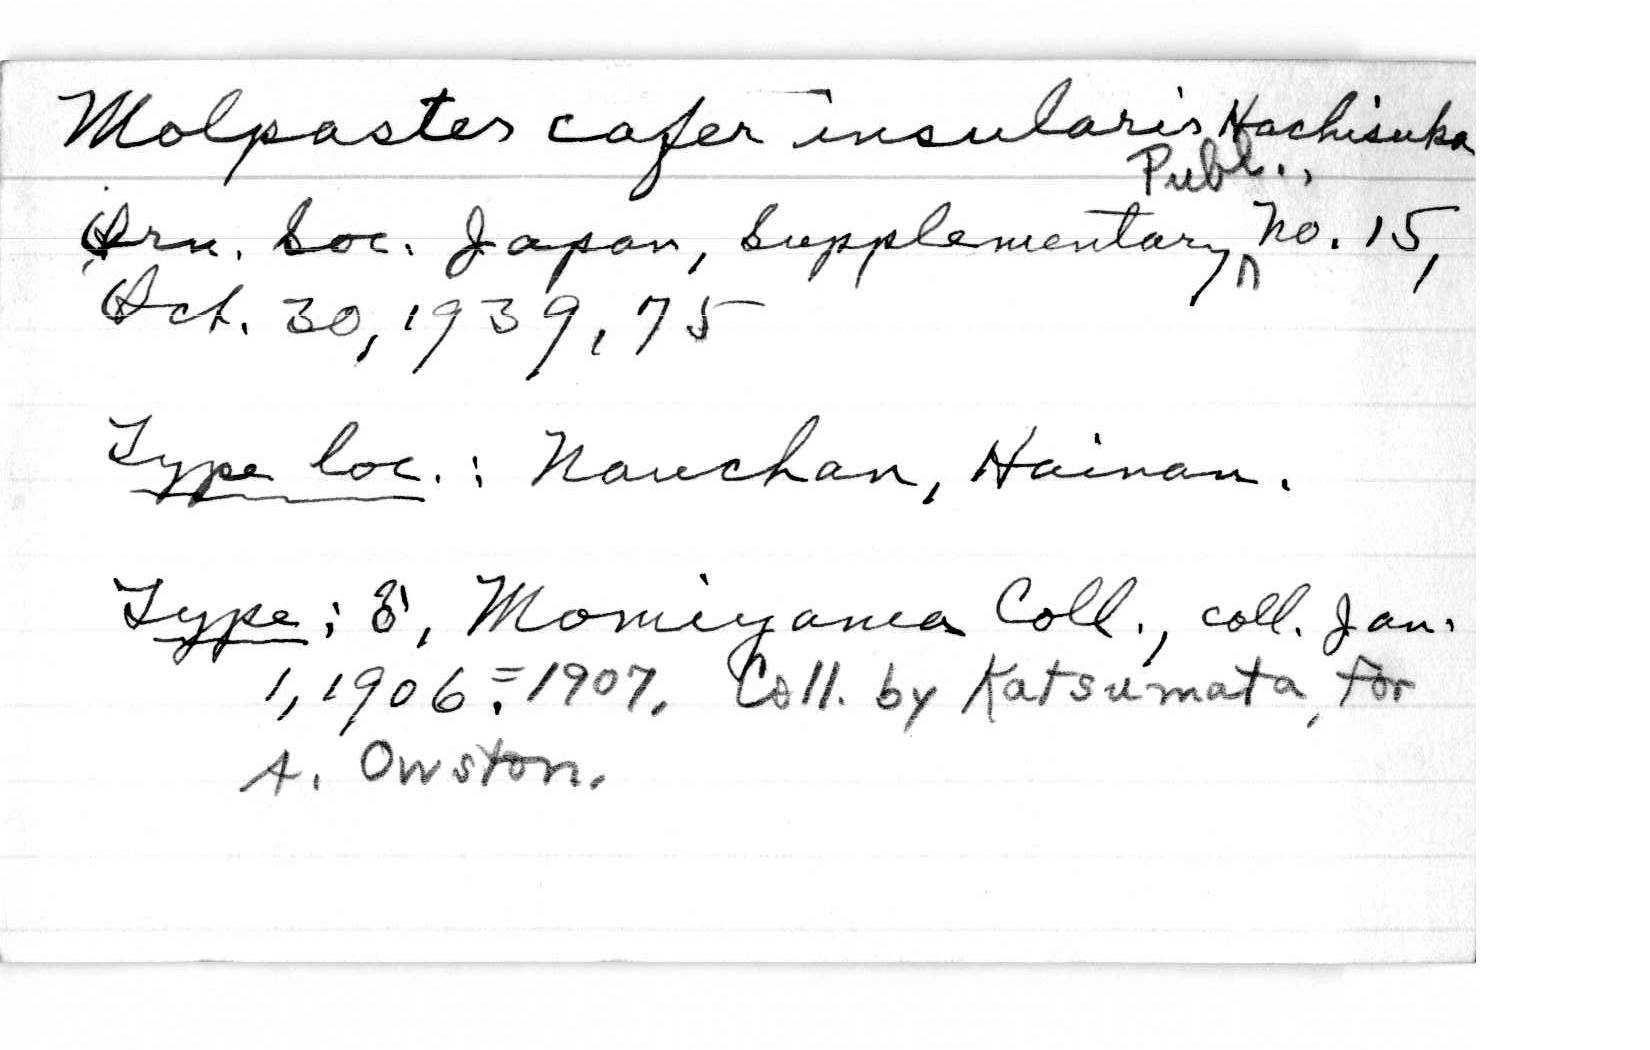 Molpastes cafer insularis Hachisuka
Publ.,
Orn. Soc. Japan, Supplementary No. 15,
Oct. 30, 1939, 75
Type loc.: Nauchan, Hainan.
Type: ♂, Momiyama Coll., coll. Jan.
1, 1906 = 1907. Coll. by Katsumata, for
A. Owston.